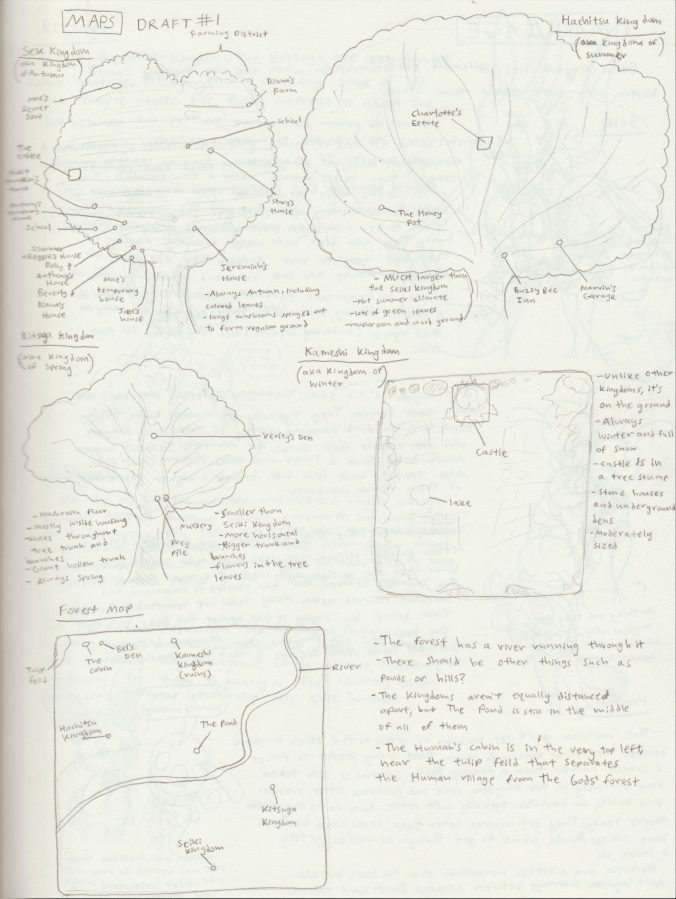 MAPS DRAFT #1
Farming District
Seiki Kingdom
(aka Kingdom
of Autumn)
Mae's
Secret
Spot
Diana's
Farm
School
The
Castle
Stacy's
House
School
+ Reggie's House
Dolly +
Anthony's
House
Beverly +
Blane's
House
Mae's
temporary
house
House
Jeremiah's
House
- Always Autumn, including
colored leaves.
- Large mushrooms springed out
to form regular ground
Hachitsu Kingdom
(aka Kingdom of
Summer)
Charlotte's
Estate
The Honey
Pot
Buzzy Bee
Inn
Marvin's
Garage
- MUCH larger than
the Seiki Kingdom
- Hot summer climate
- lots of green leaves
- mushroom and wood ground
Kitsuga Kingdom
(aka Kingdom
of Spring)
Verity's Den
Nursery
Prey
Pile
- Mushroom floor
- Mostly inside housing
- Holes throughout
tree trunk and
branches
- Giant hollow trunk
- Always Spring
- Smaller than
Seiki Kingdom
- More horizontal
- Bigger trunk and
branches
- Flowers in the tree
leaves
Kameshi Kingdom
(aka Kingdom of
Winter)
Castle
lake
- Unlike other
kingdoms, it's
on the ground
- Always
winter and full
of snow
- castle is in
a tree stump
- Stone houses
and underground
dens
- Moderately
sized
Forest Map
Tulip
feild
The
Cabin
Bel's
Den
Kameshi
Kingdom
(ruins)
River
Hachitsu
Kingdom
The Pond
Kitsuga
Kingdom
Seiki
Kingdom
- The forest has a river running through it
- There should be other things such as
ponds or hills?
- The Kingdoms aren't equally distanced
apart, but The Pond is still in the middle
of all of them
- The Human's cabin is in the very top left,
near the tulip feild that separates
the Human village from the Gods' forest